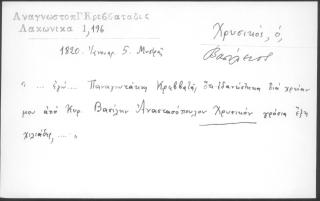 Αναγνωστοπ Γ Κρεββατᾶδες
Λακωνικα 1, 196
Χρυσικός, ὁ,
Βασίλειος
1820. Ἰανουαρ. 5. Μυστρᾶ
"... ἐγώ... Παναγιωτάκης Κρεββατᾶς, ὅτι ἐδανείσθηκα διά χρείαν
μου ἀπό Κυρ. Βασίλην Ἀναστασόπουλον Χρυσικόν γρόσια ἕξη
χιλιάδες, ...."